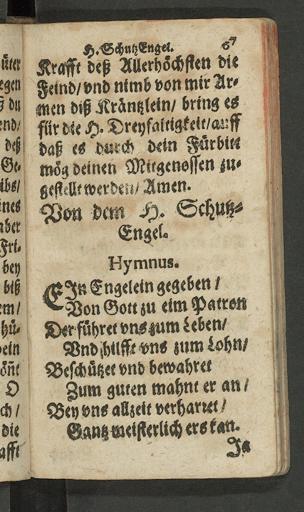 H. SchutzEngel. 67
Krafft deß Allerhöchsten die
Feind/ vnd nimb von mir Ar-
men diß Kräntzlein/ bring es
für die H. Dreyfaltigkeit/ auff
daß es durch dein Fürbitt
mög deinen Mitgenossen zu-
gestellt werden/ Amen.
Von dem H. Schutz-
Engel.
Hymnus.
EIn Engelein gegeben/
Von Gott zu eim Patron
Der führet vns zum Leben/
Vnd hilfft vns zum Lohn/
Beschützet vnd bewahret
Zum guten mahnt er an/
Bey vns allzeit verharret/
Gantz meisterlich ers kan.
Ja